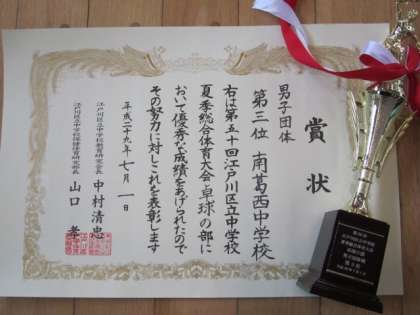 賞状
男子団体
第三位 南葛西中学校
右は第五十回江戸川区立中学校
夏季総合体育大会 卓球の部に
おいて優秀な成績をあげられたので
その努力に対しこれを表彰します
平成二十九年七月一日
江戸川区立中学校教育研究会長 中村清忠
江戸川区立中学校保健体育研究部長 山口孝